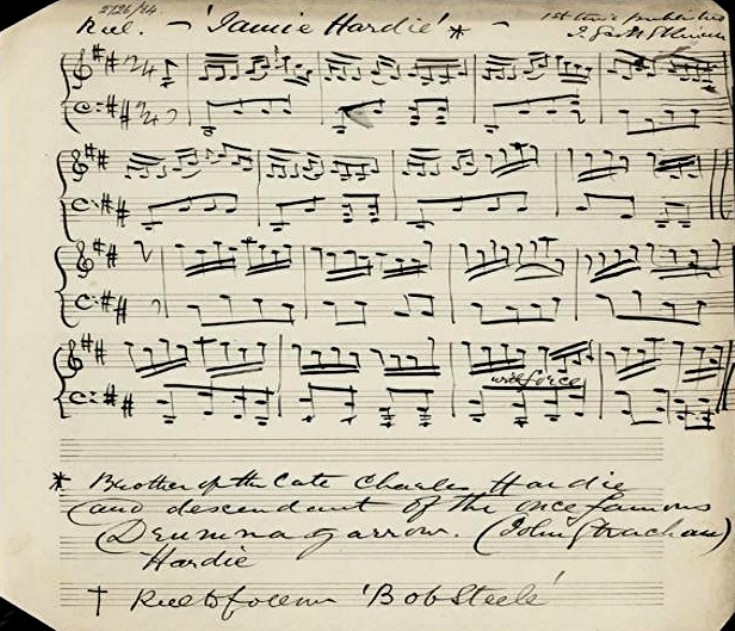 2726/24.
Reel. - 'Jamie Hardie' * -
1st time published
J. Scott Skinner
with force
* Brother of the late Charles Hardie
(and descendant of the once famous
Drumnagarrow. (John Strachan)
Hardie
† Reel to follow 'Bob Steele'